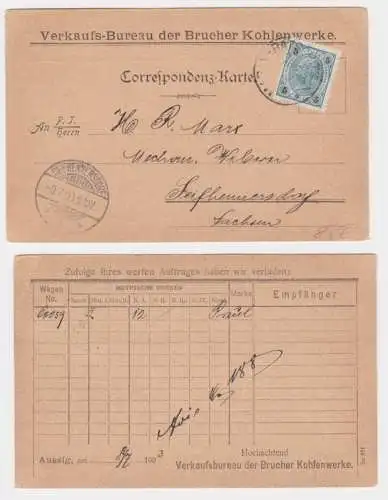 Verkaufs-Bureau der Brucher Kohlenwerke.
Correspondenz-Karte
An P. T. Herrn H. R. Marx
Mechan. Weberei
Seifhennersdorf
Sachsen
5 5
Zufolge Ihres werten Auftrages haben wir verladen:
Wagen No. METRISCHE TONNEN Marke Empfänger
12 Paul
Avis No 188
Aussig, am 8/7 1903
Hochachtend
Verkaufsbureau der Brucher Kohlenwerke.